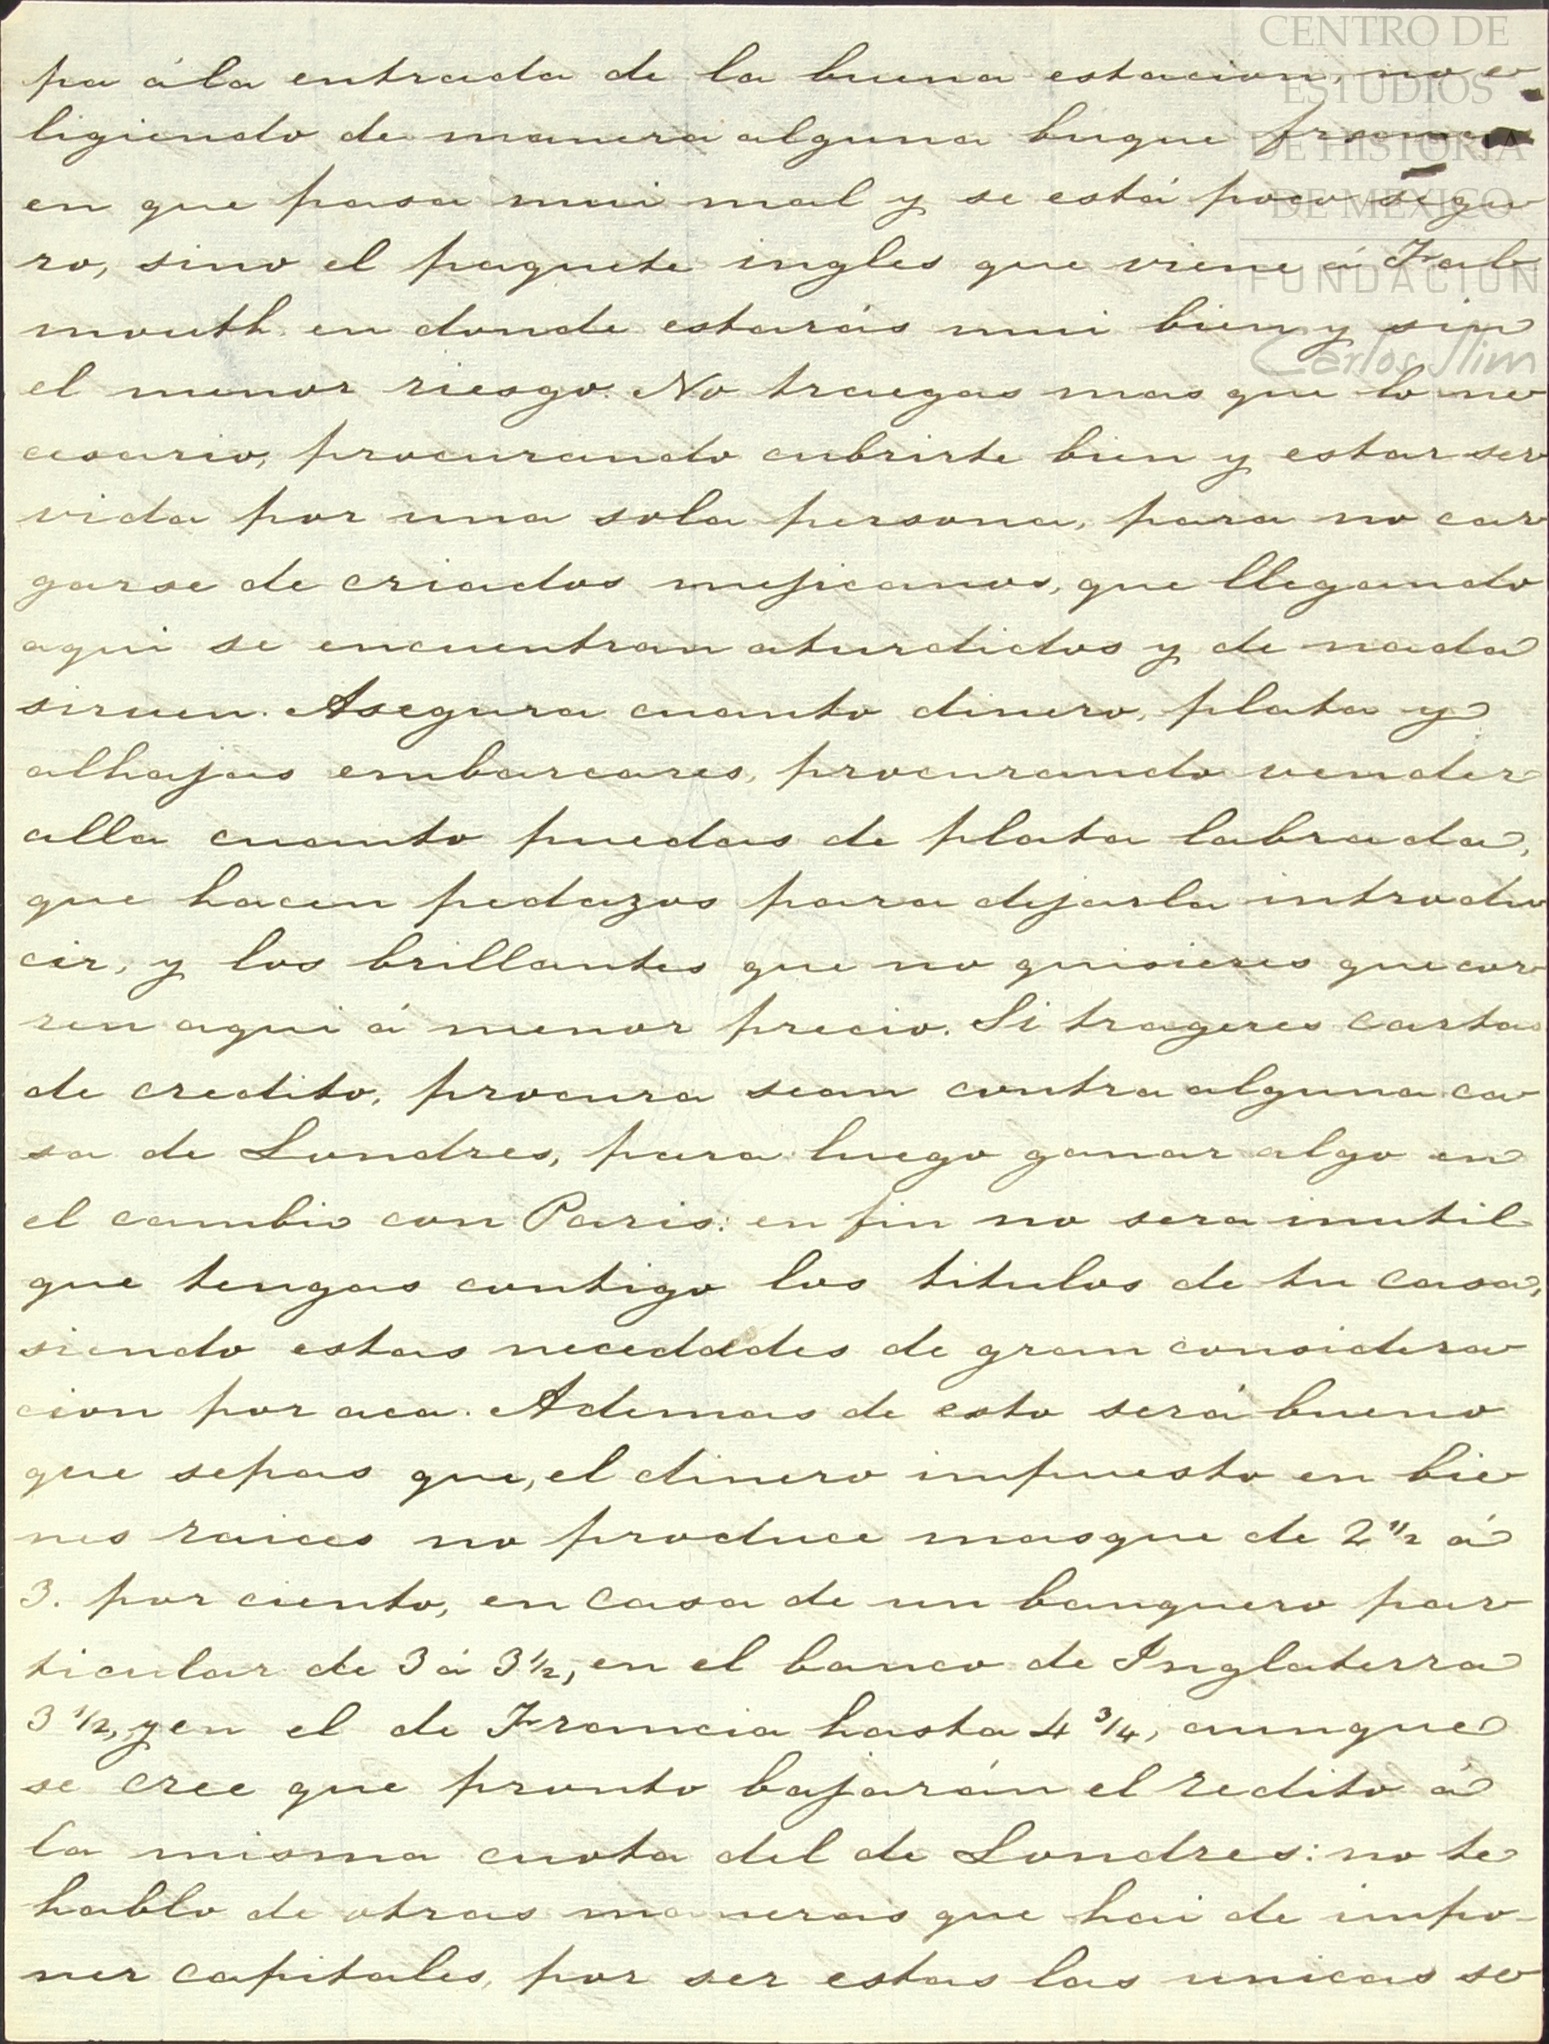 CENTRO DE
ESTUDIOS
DE HISTORIA
DE MEXICO
FUNDACION
Carlos Slim
pa á la entrada de la buena estacion, no e
ligiendo de manera alguna buque
en que pasa mui mal y se está poco segu
ro, sino el paquete ingles que viene á Fal
mouth en donde estarás mui bien y sin
el menor riesgo. No traegas mas que lo ne
cesario, procurando cubrirte bien y estar ser
vida por una sola persona, para no car
garse de criados mejicanos, que llegando
aqui se encuentran aturdidos y de nada
sirven. Asegura cuanto dinero, plata y
alhajas embarcares, procurando vender
alla cuanto puedas de plata labrada,
que hacen pedazos para dejarla introdu
cir, y los brillantes que no quisieres que cor
ren aqui á menor precio. Si trageres cartas
de credito, procura sean contra alguna ca
sa de Londres, para luego ganar algo en
el cambio con Paris: en fin no sera inutil
que tengas contigo los titulos de tu casa,
siendo estas necedades de gran considera
cion por aca. Ademas de esto será bueno
que sepas que, el dinero impuesto en bie
nes raices no produce mas que de 2 1/2 á
3. por ciento, en casa de un banquero par
ticular de 3 á 3 1/2, en el banco de Inglaterra
3 1/2, y en el de Francia hasta 4 3/4, aunque
se cree que pronto bajarán el redito á
la misma cuota del de Londres: no te
hablo de otras maneras que hai de impo-
ner capitales, por ser estas las unicas se